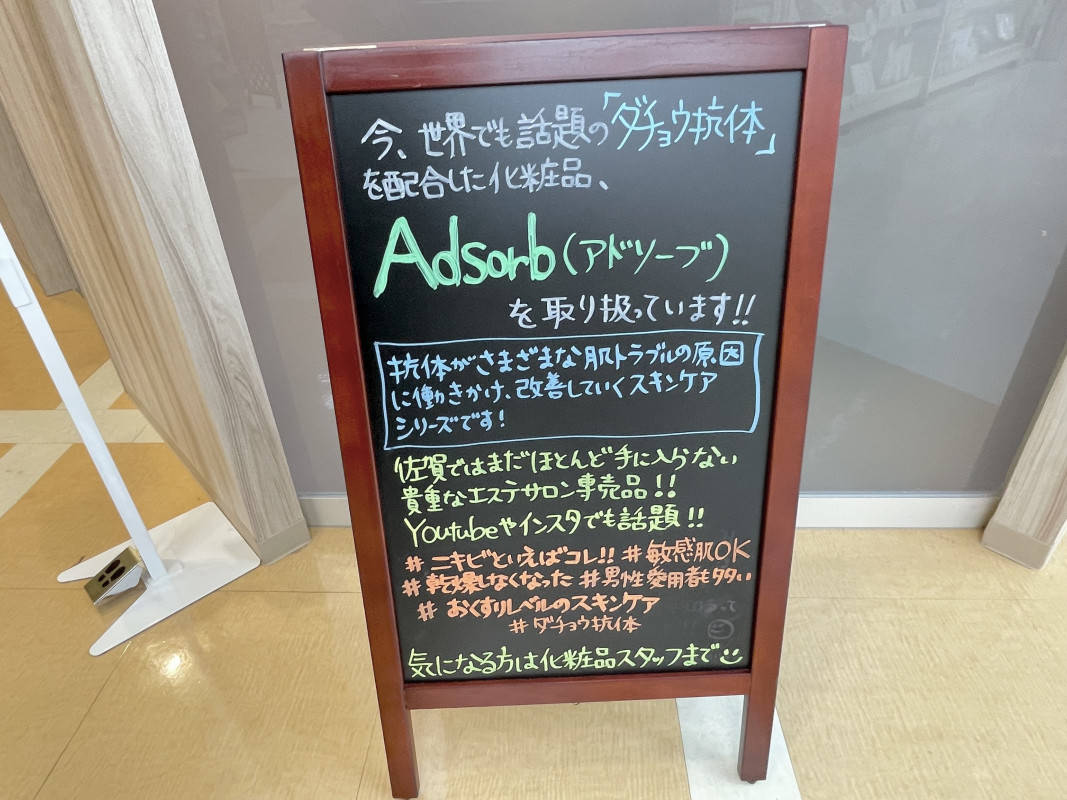 今、世界でも話題の「ダチョウ抗体」
を配合した化粧品、
Adsorb(アドソーブ)
を取り扱っています!!
抗体がさまざまな肌トラブルの原因
に働きかけ、改善していくスキンケア
シリーズです!
佐賀ではまだほとんど手に入らない
貴重なエステサロン専売品!!
Youtubeやインスタでも話題!!
#ニキビといえばコレ!! #敏感肌OK
#乾燥しなくなった #男性愛用者も多い
#おくすりレベルのスキンケア
#ダチョウ抗体
気になる方は化粧品スタッフまで